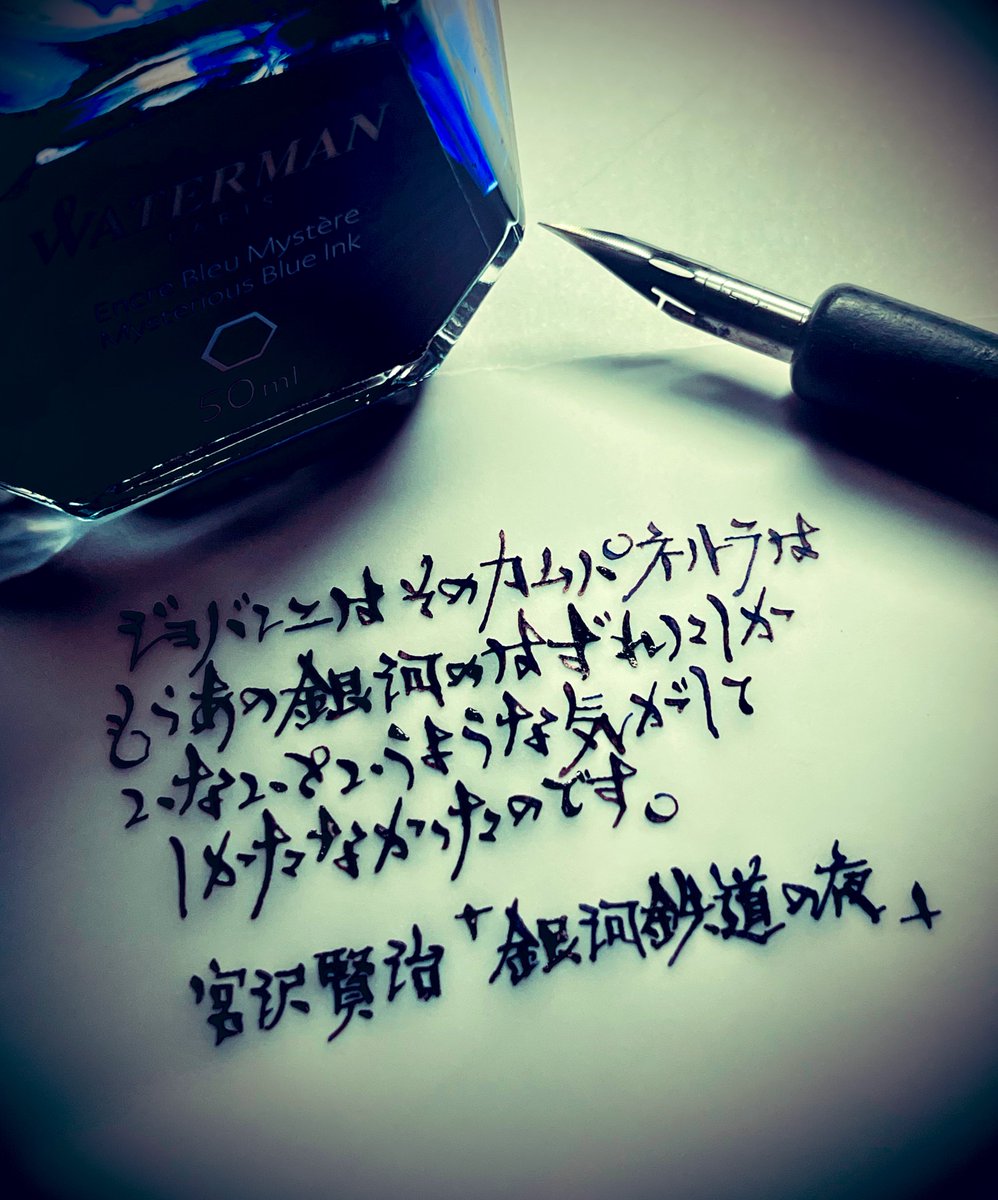 WATERMAN
PARIS
Encre Bleu Mystère
Mysterious Blue Ink
50ml
ジョバンニはそのカムパネルラは
もうあの銀河のはずれにしか
いないというような気がして
しかたなかったのです。
宮沢賢治「銀河鉄道の夜」